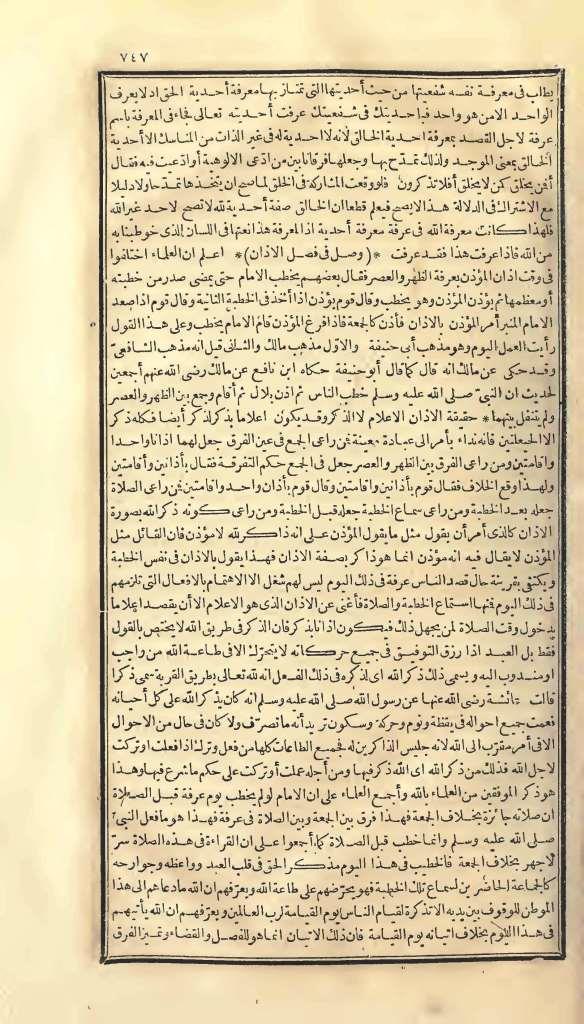 ٧٤٧
يطالب في معرفة نفسه شفعيتها من حيث أحديتها التي تمتاز بها معرفة أحدية الحق اذ لا يعرف
الواحد الا من هو واحد فباحديتك في شفعيتك عرفت أحديته تعالى فجاء في المعرفة باسم
عرفة لاجل القصد بمعرفة احدية الخالق لأنه لا أحدية له في غير الذات من المناسك الا أحدية
الخالق بمعنى الموجد ولذلك تمدّح بها وجعلها فرقانا بين من ادّعى الالوهية أو ادّعيت فيه فقال
أفمن يخلق كمن لا يخلق أفلا تذكرون فلو وقعت المشاركة في الخلق لما صح ان يتخذها تمدّحا ولا دليلا
مع الاشتراك في الدلالة هذا لا يصح فيعلم قطعا ان الخالق صفة أحدية لله لا تصح لاحد غير الله
فلهذا كانت معرفة الله في عرفة معرفة أحدية اذ المعرفة هذا نعتها في اللسان الذي خوطبنا به
من الله فاذا عرفت هذا فقد عرفت * (وصل في فصل الاذان) * اعلم ان العلماء اختلفوا
في وقت اذان المؤذن بعرفة الظهر والعصر فقال بعضهم يخطب الامام حتى يمضى صدر من خطبته
أو معظمها ثم يؤذن المؤذن وهو يخطب وقال قوم يؤذن اذا أخذ في الخطبة الثانية وقال قوم اذا صعد
الامام المنبر أمر المؤذن بالاذان فأذن كالجمعة فاذا فرغ المؤذن قام الامام يخطب وعلى هذا القول
رأيت العمل اليوم وهو مذهب أبى حنيفة والاوّل مذهب مالك والثانى قيل انه مذهب الشافعىّ
وقد حكى عن مالك انه قال كما قال أبو حنيفة حكاه ابن نافع عن مالك رضى الله عنهم أجمعين
لحديث ان النبىّ صلى الله عليه وسلم خطب الناس ثم اذن بلال ثم أقام وجمع بين الظهر والعصر
ولم يتنفل بينهما * حقيقة الاذان الاعلام لا الذكر وقد يكون اعلاما بذكر لذكر أيضا فكله ذكر
الا الحيعلتين فانه نداء بأمر الى عبادة معينة فمن راعى الجمع في عين الفرق جعل لهما اذانا واحدا
واقامتين ومن راعى الفرق بين الظهر والعصر جعل في الجمع حكم التفرقة فقال بأذانين وأقامتين
ولهذا وقع الخلاف فقال قوم بأذانين واقامتين وقال قوم بأذان واحد واقامتين فمن راعى الصلاة
جعله بعد الخطبة ومن راعى سماع الخطبة جعله قبل الخطبة ومن راعى كونه ذكر الله بصورة
الاذان كالذى أمر أن يقول مثل ما يقول المؤذن على انه ذاكر لله لا مؤذن فان القائل مثل
المؤذن لا يقال فيه انه مؤذن انما هو ذاكر بصفة الاذان فهذا يقول بالاذان في نفس الخطبة
ويكتفى بقرينة حال قصد الناس عرفة في ذلك اليوم ليس لهم شغل الا الاهتمام بالافعال التى تلزمهم
في ذلك اليوم فنها استماع الخطبة والصلاة فأغنى عن الاذان الذى هو الاعلام الا أن يقصد اعلاما
بدخول وقت الصلاة لمن يجهل ذلك فيكون اذانا بذكر فان الذكر في طريق الله لا يختص بالقول
فقط بل العبد اذا رزق التوفيق في جميع حركاته لا يتحرّك الا في طاعة الله من واجب
او مندوب اليه ويسمى ذلك ذكر الله اى لذكره في ذلك الفعل انه لله تعالى بطريق القربة سمى ذكرا
قالت عائشة رضى الله عنها عن رسول الله صلى الله عليه وسلم انه كان يذكر الله على كل أحيانه
فعمت جميع احواله في يقظة ونوم وحركة وسكون تريد أنه ما تصرّف ولا كان في حال من الاحوال
الا في أمر مقرّب الى الله لانه جليس الذاكرين له فجميع الطاعات كلها من فعل وترك اذا فعلت او تركت
لاجل الله فذلك من ذكر الله اى الله ذكر فيها ومن أجله عملت أو تركت على حكم ما شرع فيها وهذا
هو ذكر الموفقين من العلماء بالله وأجمع العلماء على ان الامام لو لم يخطب يوم عرفة قبل الصلاة
ان صلاته جائزة بخلاف الجمعة فهذا فرق بين الجمعة وبين الصلاة في عرفة فهذا هو ما فعل النبىّ
صلى الله عليه وسلم وانما خطب قبل الصلاة كما أجمعوا على ان القراءة في هذه الصلاة سرّ
لا جهر بخلاف الجمعة فالخطيب في هذا اليوم مذكر الحق في قلب العبد وواعظه وجوارحه
كالجماعة الحاضرين لسماع تلك الخطبة فهو يحرّضهم على طاعة الله ويعرّفهم ان الله ما دعاهم الى هذا
الموطن للوقوف بين يديه الا تذكرة لقيام الناس يوم القيامة لرب العالمين ويعرّفهم ان الله يأتيهم
في هذا اليوم بخلاف اتيانه يوم القيامة فان ذلك الاتيان انما هو للفصل والقضاء وتميز الفرق